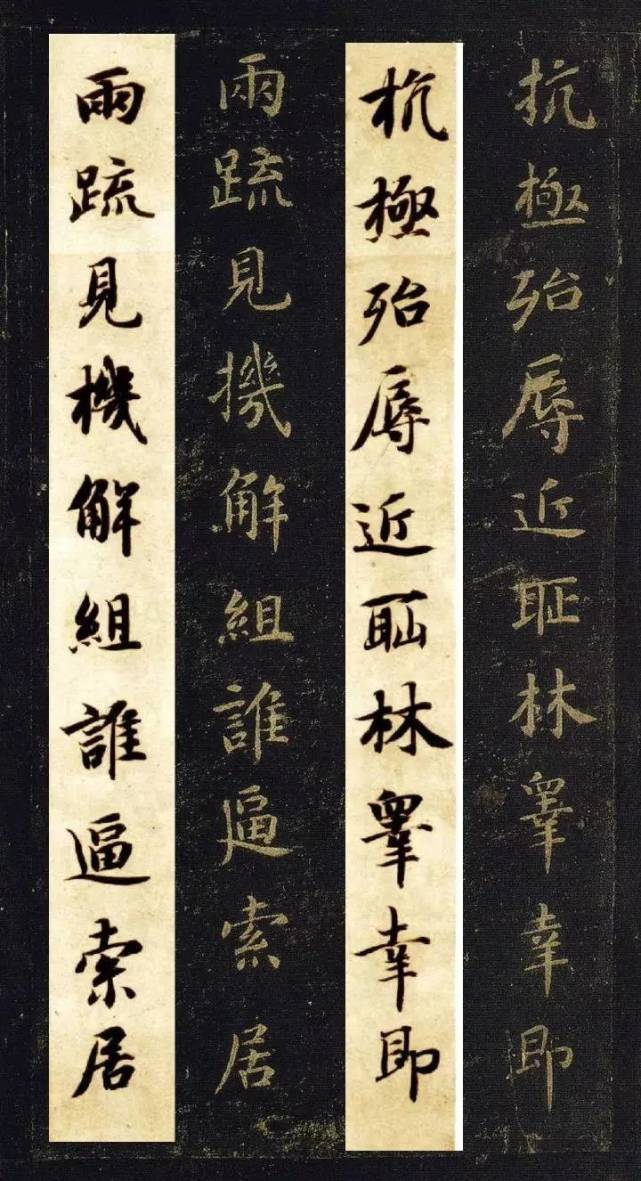 抗極殆辱近恥林睾幸即
杭極殆辱近恥林睾幸即
兩疏見機解組誰逼索居
兩疏見機解組誰逼索居